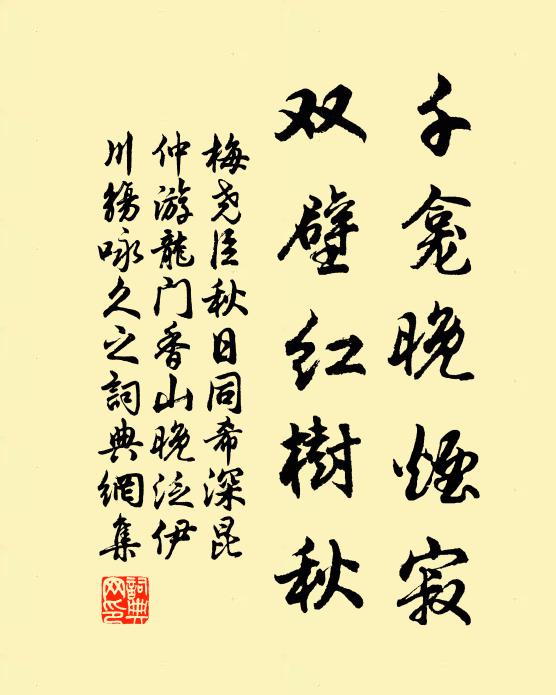 千龛晚煙寂
双壁红樹秋
梅尧臣秋日同希深昆
仲游龍门香山晚泛伊
川觞咏久之詞典網集
詞典网印